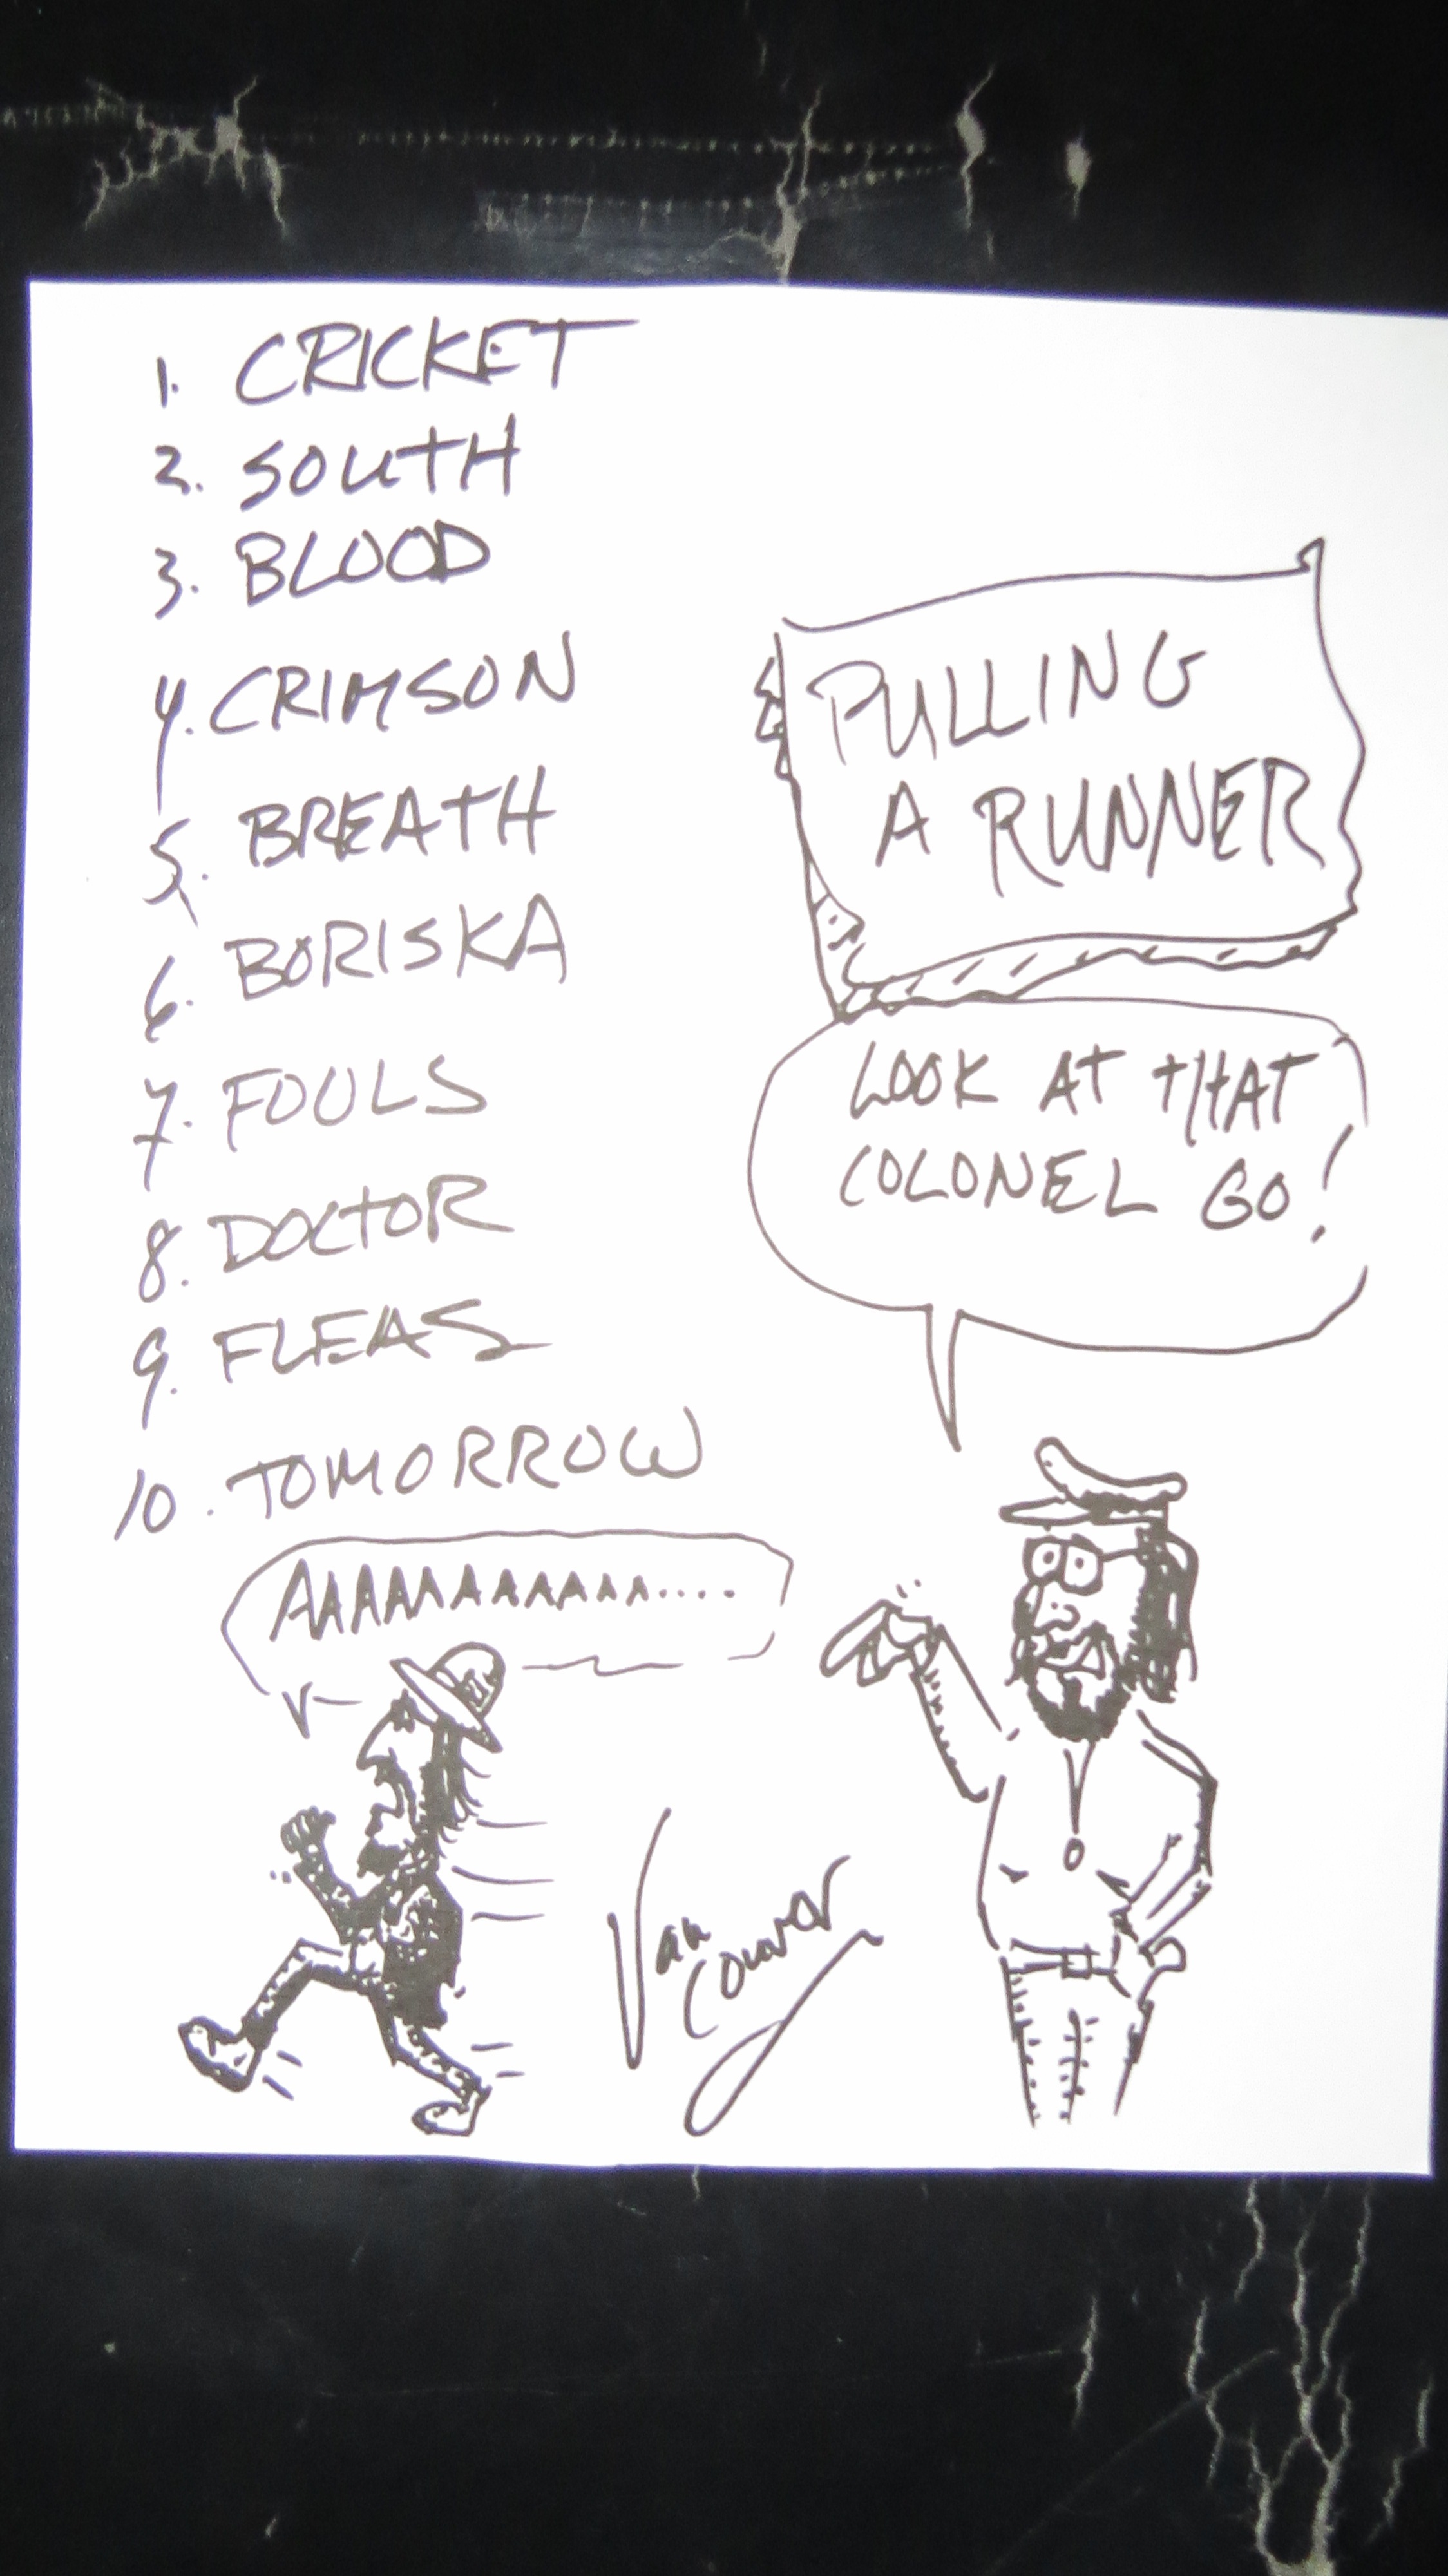 1. CRICKET
2. SOUTH
3. BLOOD
4. CRIMSON
5. BREATH
6. BORISKA
7. FOULS
8. DOCTOR
9. FLEAS
10. TOMORROW
PULLING
A RUNNER
LOOK AT THAT
COLONEL GO!
AAAAAAAAAAA....
Van
Conner